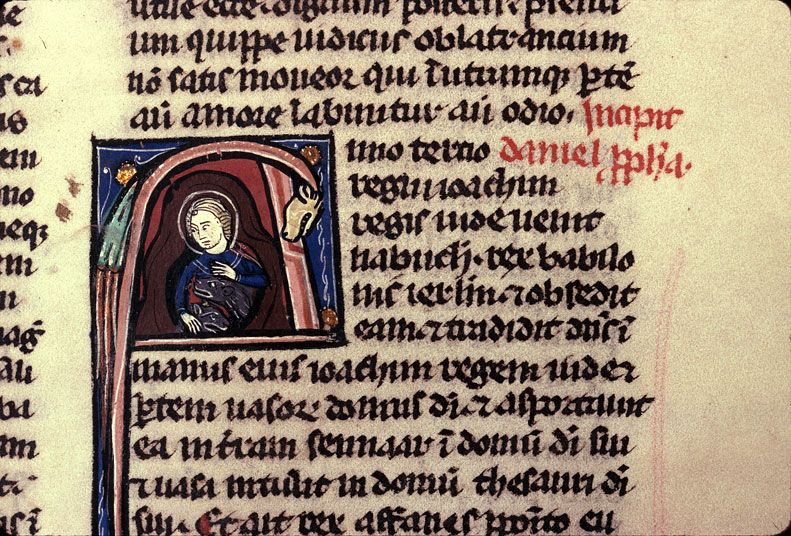 utile ecce digalium
um quippe uidicus oblatrantium
nō satis moueor qui ī utrumqꝫ ꝑtē
aū amore labuntur aū odio. Incipit
nno tercio daniel ꝓpħa.
regni ioachim
regis iude uenit
nabuch. rex babilo
nis ierl̄m ⁊ obsedit
eam ⁊ tradidit dn̄s ī
manus eius ioachim regem iude ⁊
ꝑtem uasoꝝ domus di ⁊ asportauit
ea in t̄ram sennaar ī domū di sui
⁊ uasa intulit in domū thesauri di
sui. Et ait rex affanes ꝓpōito eu